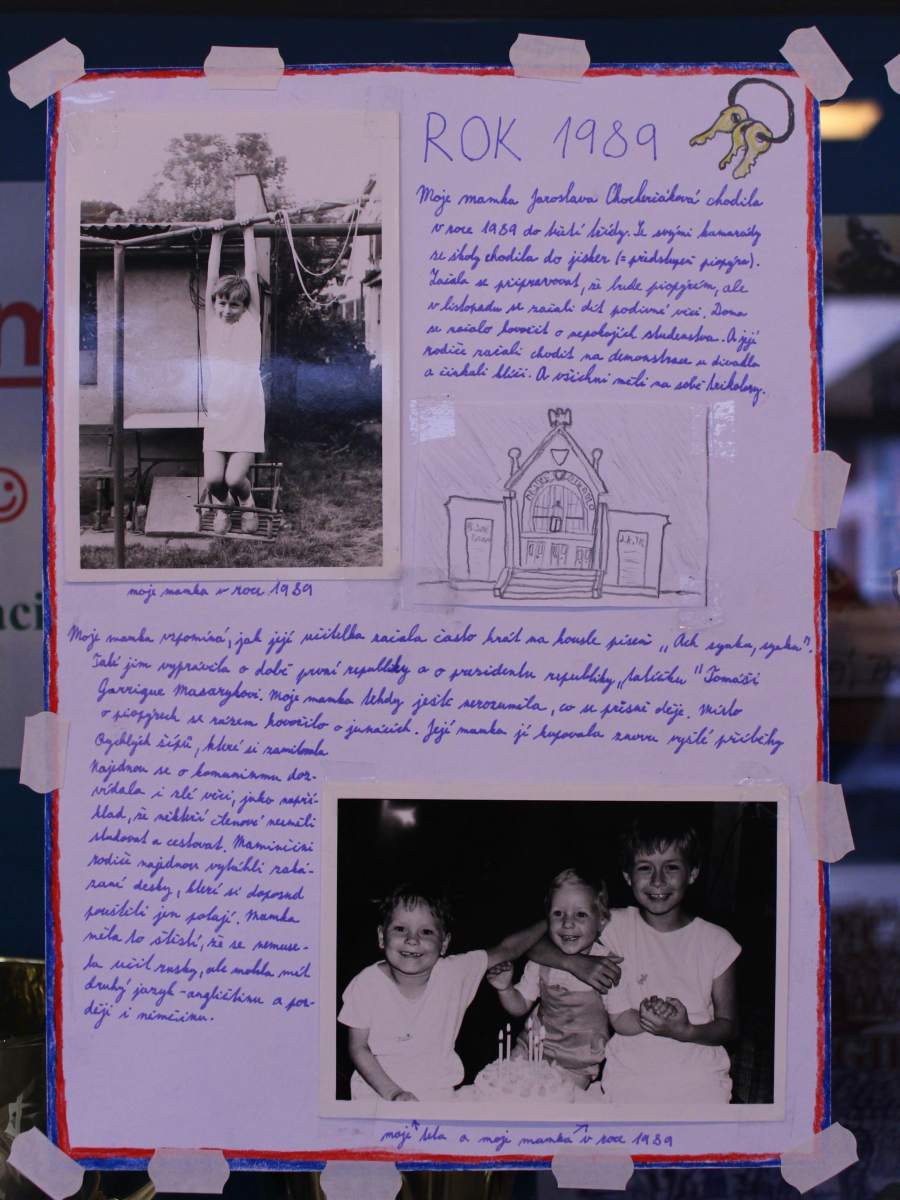 ROK 1989
Moje mamka Jaroslava Chocheriáková chodila
v roce 1989 do třetí třídy. Se svými kamarády
ze školy chodila do jisker (= předstupeň pionýra).
Začala se připravovat, že bude pionýrem, ale
v listopadu se začali dít podivné věci. Doma
se začalo hovořit o nepokojích studenstva. A její
rodiče začali chodit na demonstrace u divadla
a cinkali klíči. A všichni měli na sobě trikolory.
moje mamka v roce 1989
Moje mamka vzpomíná, jak její učitelka začala často hrát na housle píseň „Ach synku, synku".
Také jim vyprávěla o době první republiky a o prezidentu republiky „tatíčku" Tomáši
Garrigue Masarykovi. Moje mamka tehdy ještě nerozuměla, co se přesně děje. Místo
o pionýrech se rázem hovořilo o junácích. Její mamka jí kupovala znovu vyšlé příběhy
Rychlých šípů, které si zamilovala
Najednou se o komunismu doz-
vídala i zlé věci, jako napří-
klad, že někteří členové nesměli
studovat a cestovat. Maminčini
rodiče najednou vytáhli zaká-
zané desky, které si doposud
pouštěli jen potají. Mamka
měla to štěstí, že se nemuse-
la učit rusky, ale mohla mít
druhý jazyk - angličtinu a poz-
ději i němčinu.
moje teta a moje mamka v roce 1989